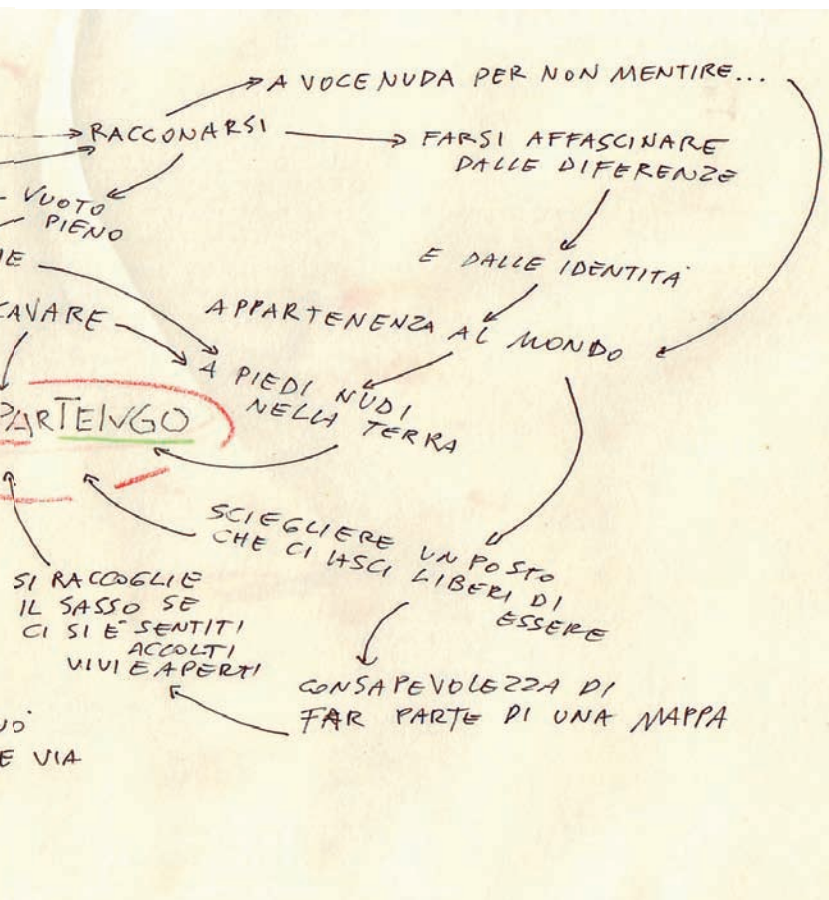 A VOCE NUDA PER NON MENTIRE...
RACCONARSI
FARSI AFFASCINARE
DALLE DIFERENZE
VUOTO
PIENO
E DALLE IDENTITÀ
CAVARE
APPARTENENZA AL MONDO
A PIEDI NUDI
NELLA TERRA
PARTENGO
SCIEGLIERE UN POSTO
CHE CI LASCI LIBERI DI
ESSERE
SI RACCOGLIE
IL SASSO SE
CI SI È SENTITI
ACCOLTI
VIVI E APERTI
CONSAPEVOLEZZA DI
FAR PARTE DI UNA MAPPA
E VIA